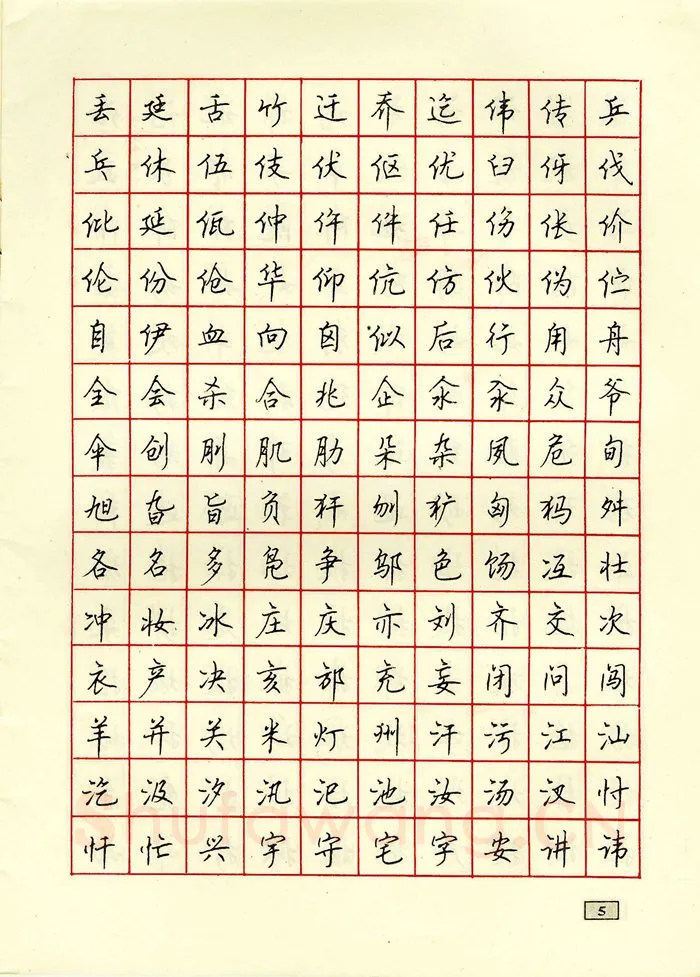 丢廷舌竹迁乔迄伟传乒
乓休伍伎伏伛优臼伢伐
仳延佤仲仵件任伤伥价
伦份伧华仰伉仿伙伪伫
自伊血向囟似后行甪舟
全会杀合兆企汆氽众爷
伞创刖肌肋朵杂夙危旬
旭旮旨负犴刎犷匈犸舛
各名多凫争邬色饧冱壮
冲妆冰庄庆亦刘齐交次
衣产决亥邡充妄闭问闯
羊并关米灯州汗污江汕
汔汲汐汛汜池汝汤汊忖
忏忙兴宇守宅字安讲讳
shufawang.cn
5